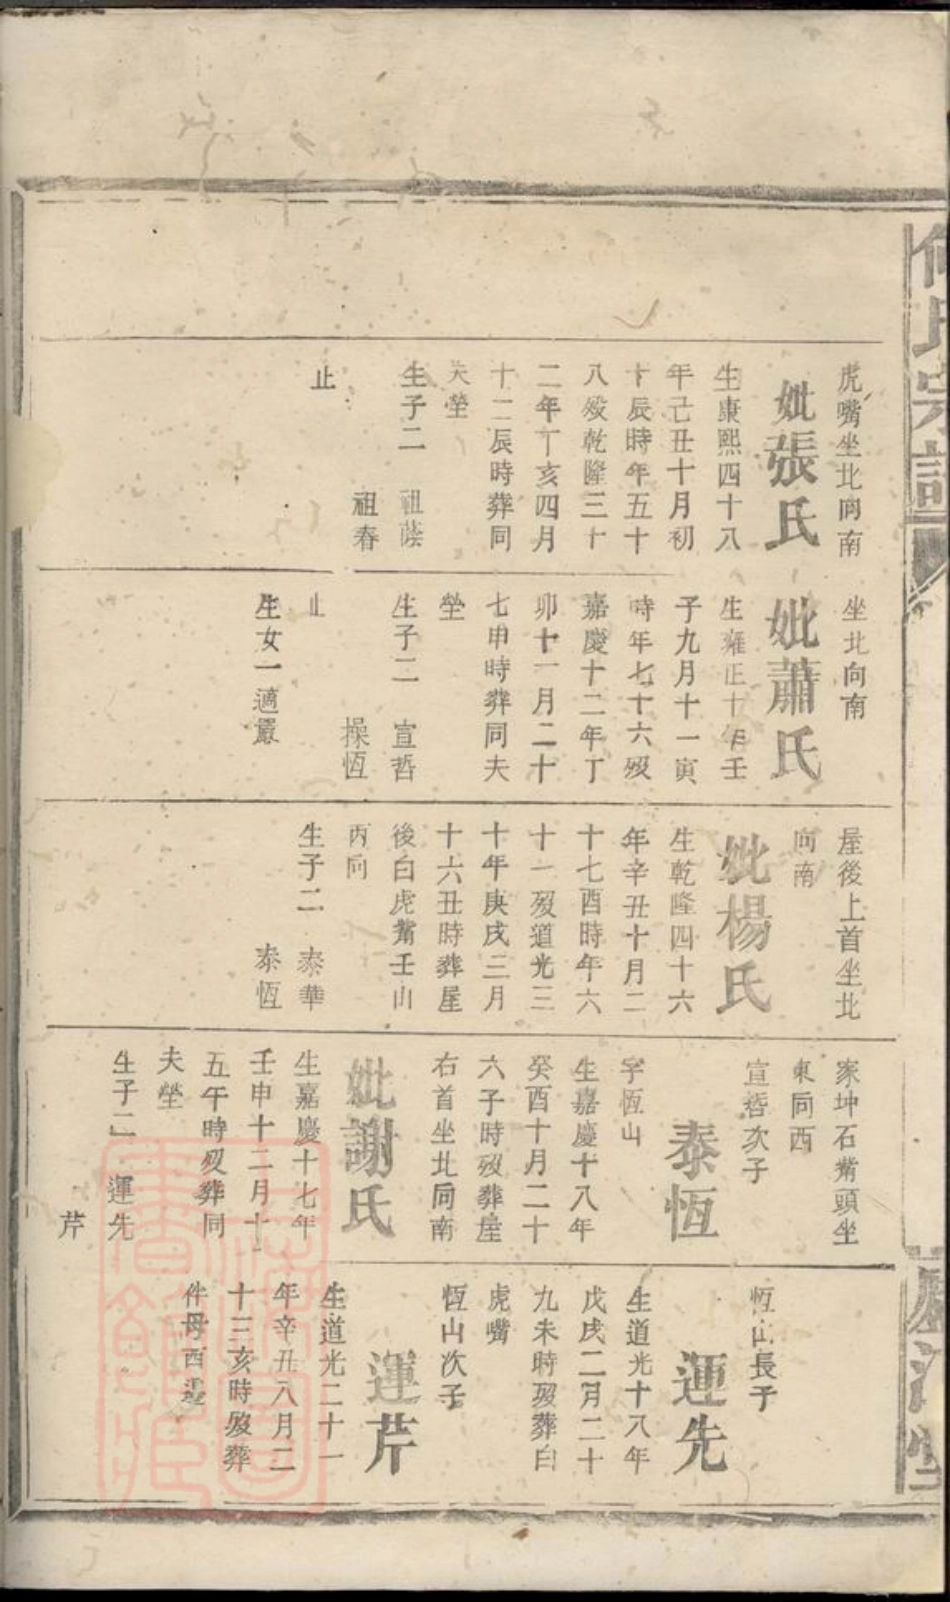 何氏宗譜
廬江堂
虎嘴坐北向南
妣張氏
生康熙四十八
年己丑十月初
十辰時年五十
八歿乾隆三十
二年丁亥四月
十二辰時葬同
夫塋
生子二 祖蔭
祖春
止
坐北向南
妣蕭氏
生雍正十年壬
子九月十一寅
時年七十六歿
嘉慶十二年丁
卯十一月二十
七申時葬同夫
塋
生子二 宣哲
操恆
止
生女一適嚴
屋後上首坐北
向南
妣楊氏
生乾隆四十六
年辛丑十月二
十七酉時年六
十一歿道光三
十年庚戌三月
十六丑時葬屋
後白虎嘴壬山
丙向
生子二 泰華
泰恆
家坤石嘴頭坐
東向西
宣哲次子
泰恆
字恆山
生嘉慶十八年
癸酉十月二十
六子時歿葬屋
右首坐北向南
妣謝氏
生嘉慶十七年
壬申十二月十
五午時歿葬同
夫塋
生子二 運先
芹
恆山長子
運先
生道光十八年
戊戌二月二十
九未時歿葬白
虎嘴
恆山次子
運芹
生道光二十一
年辛丑八月二
十三亥時歿葬
伴母西邊